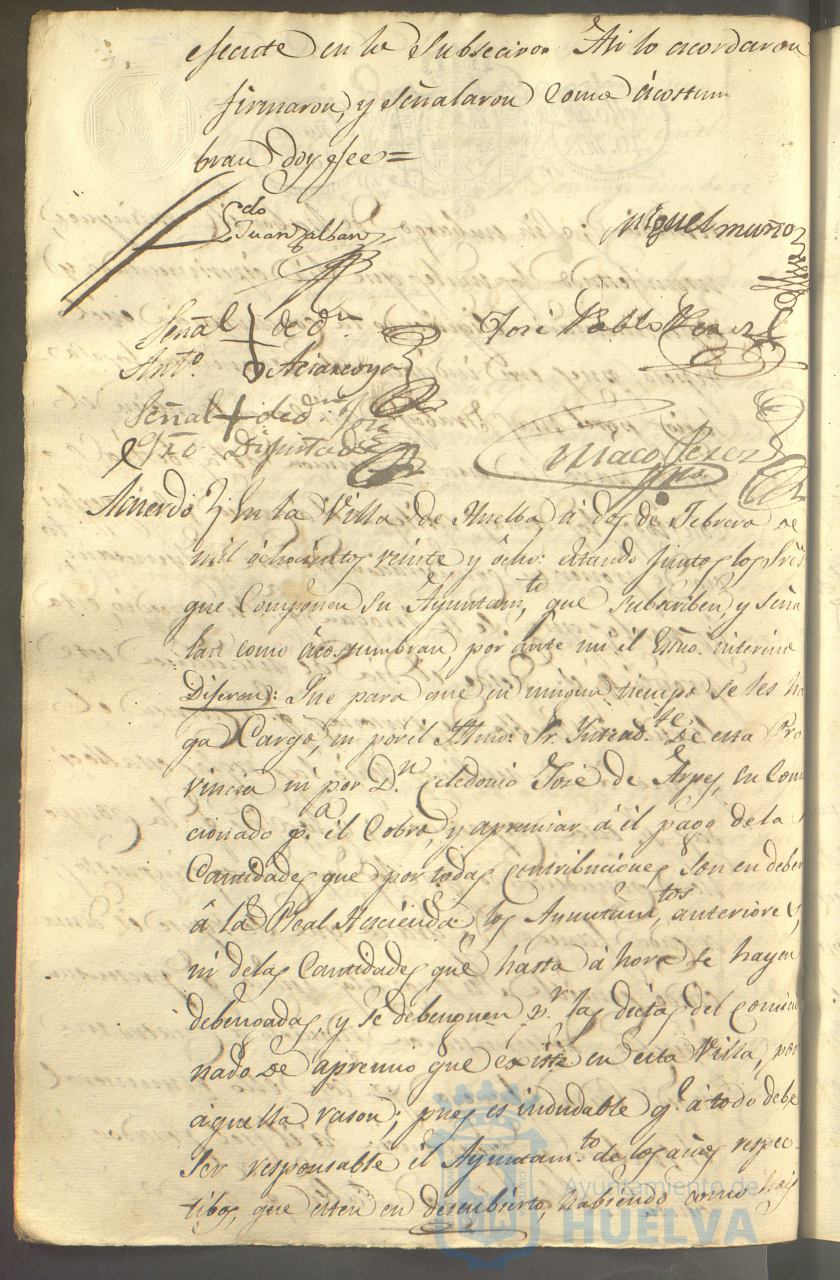 efecute en lo Subsecivo. Asi lo acordaron
firmaron, y señalaron como acostum
bran doy fee =
Lcdo
Juan Alban
Miguel Muñoz
Señal de dn
Anto
José Pablo Perez
Señal de dn José
Diputado
Perez
Acuerdo } En la Villa de Huelba, á dos de Febrero de
mil ochocientos veinte y ocho: estando juntos los Sres
que componen su Ayuntamto, que subscriben, y seña
lan como acostumbran, por ante mi el Esno. interino
Digeron: Que para que en ningun tiempo se les ha
ga Cargo, ni por el Illmo. Sr. Yntendte. de esta Pro
vincia ni por Dn Celedonio José de Arpe, su Comi
cionado pa. el Cobro, y apremiar á el pago de la
Cantidades que por todas contribuciones son en deber
á la Real Hacienda los Ayuntamtos, anteriores,
ni de las Cantidades que hasta á hora se hayan
debengadas, y se debenguen pr. las dietas del comicio
nado de apremio que existe en esta Villa, por
aquella rason; pues es indudable qe. á todo debe
ser responsable el Ayuntamto. de los años respec-
tibos, que esten en descubierto, habiendo como hay
Ayuntamiento de
HUELVA